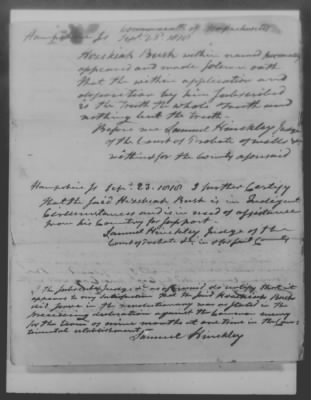 Commonwealth of Massachusetts
Hampshire Ss Sept. 23d 1818
Hezekiah Bush within named personally
appeared and made solemn oath
that the within application and
deposition by him subscribed
is the Truth the whole Truth and
nothing but the Truth.
Before me Samuel Hinckley Judge
of the Court of Probate of wills &c
within & for the County aforesaid
Hampshire Ss Sept. 23. 1818 I further Certify
that the said Hezekiah Bush is in Indigent
Circumstances and is in need of assistance
from his Country for support.
Samuel Hinckley Judge of the
Court of Probate &c in & for said County
I the subscribing Judge &c as aforesaid do certify that it
appears to my satisfaction that the said Hezekiah Bush
did serve in the revolutionary war as stated in the
preceding declaration against the Common enemy
for the term of nine months at one time in the Con-
tinental establishment
Samuel Hinckley